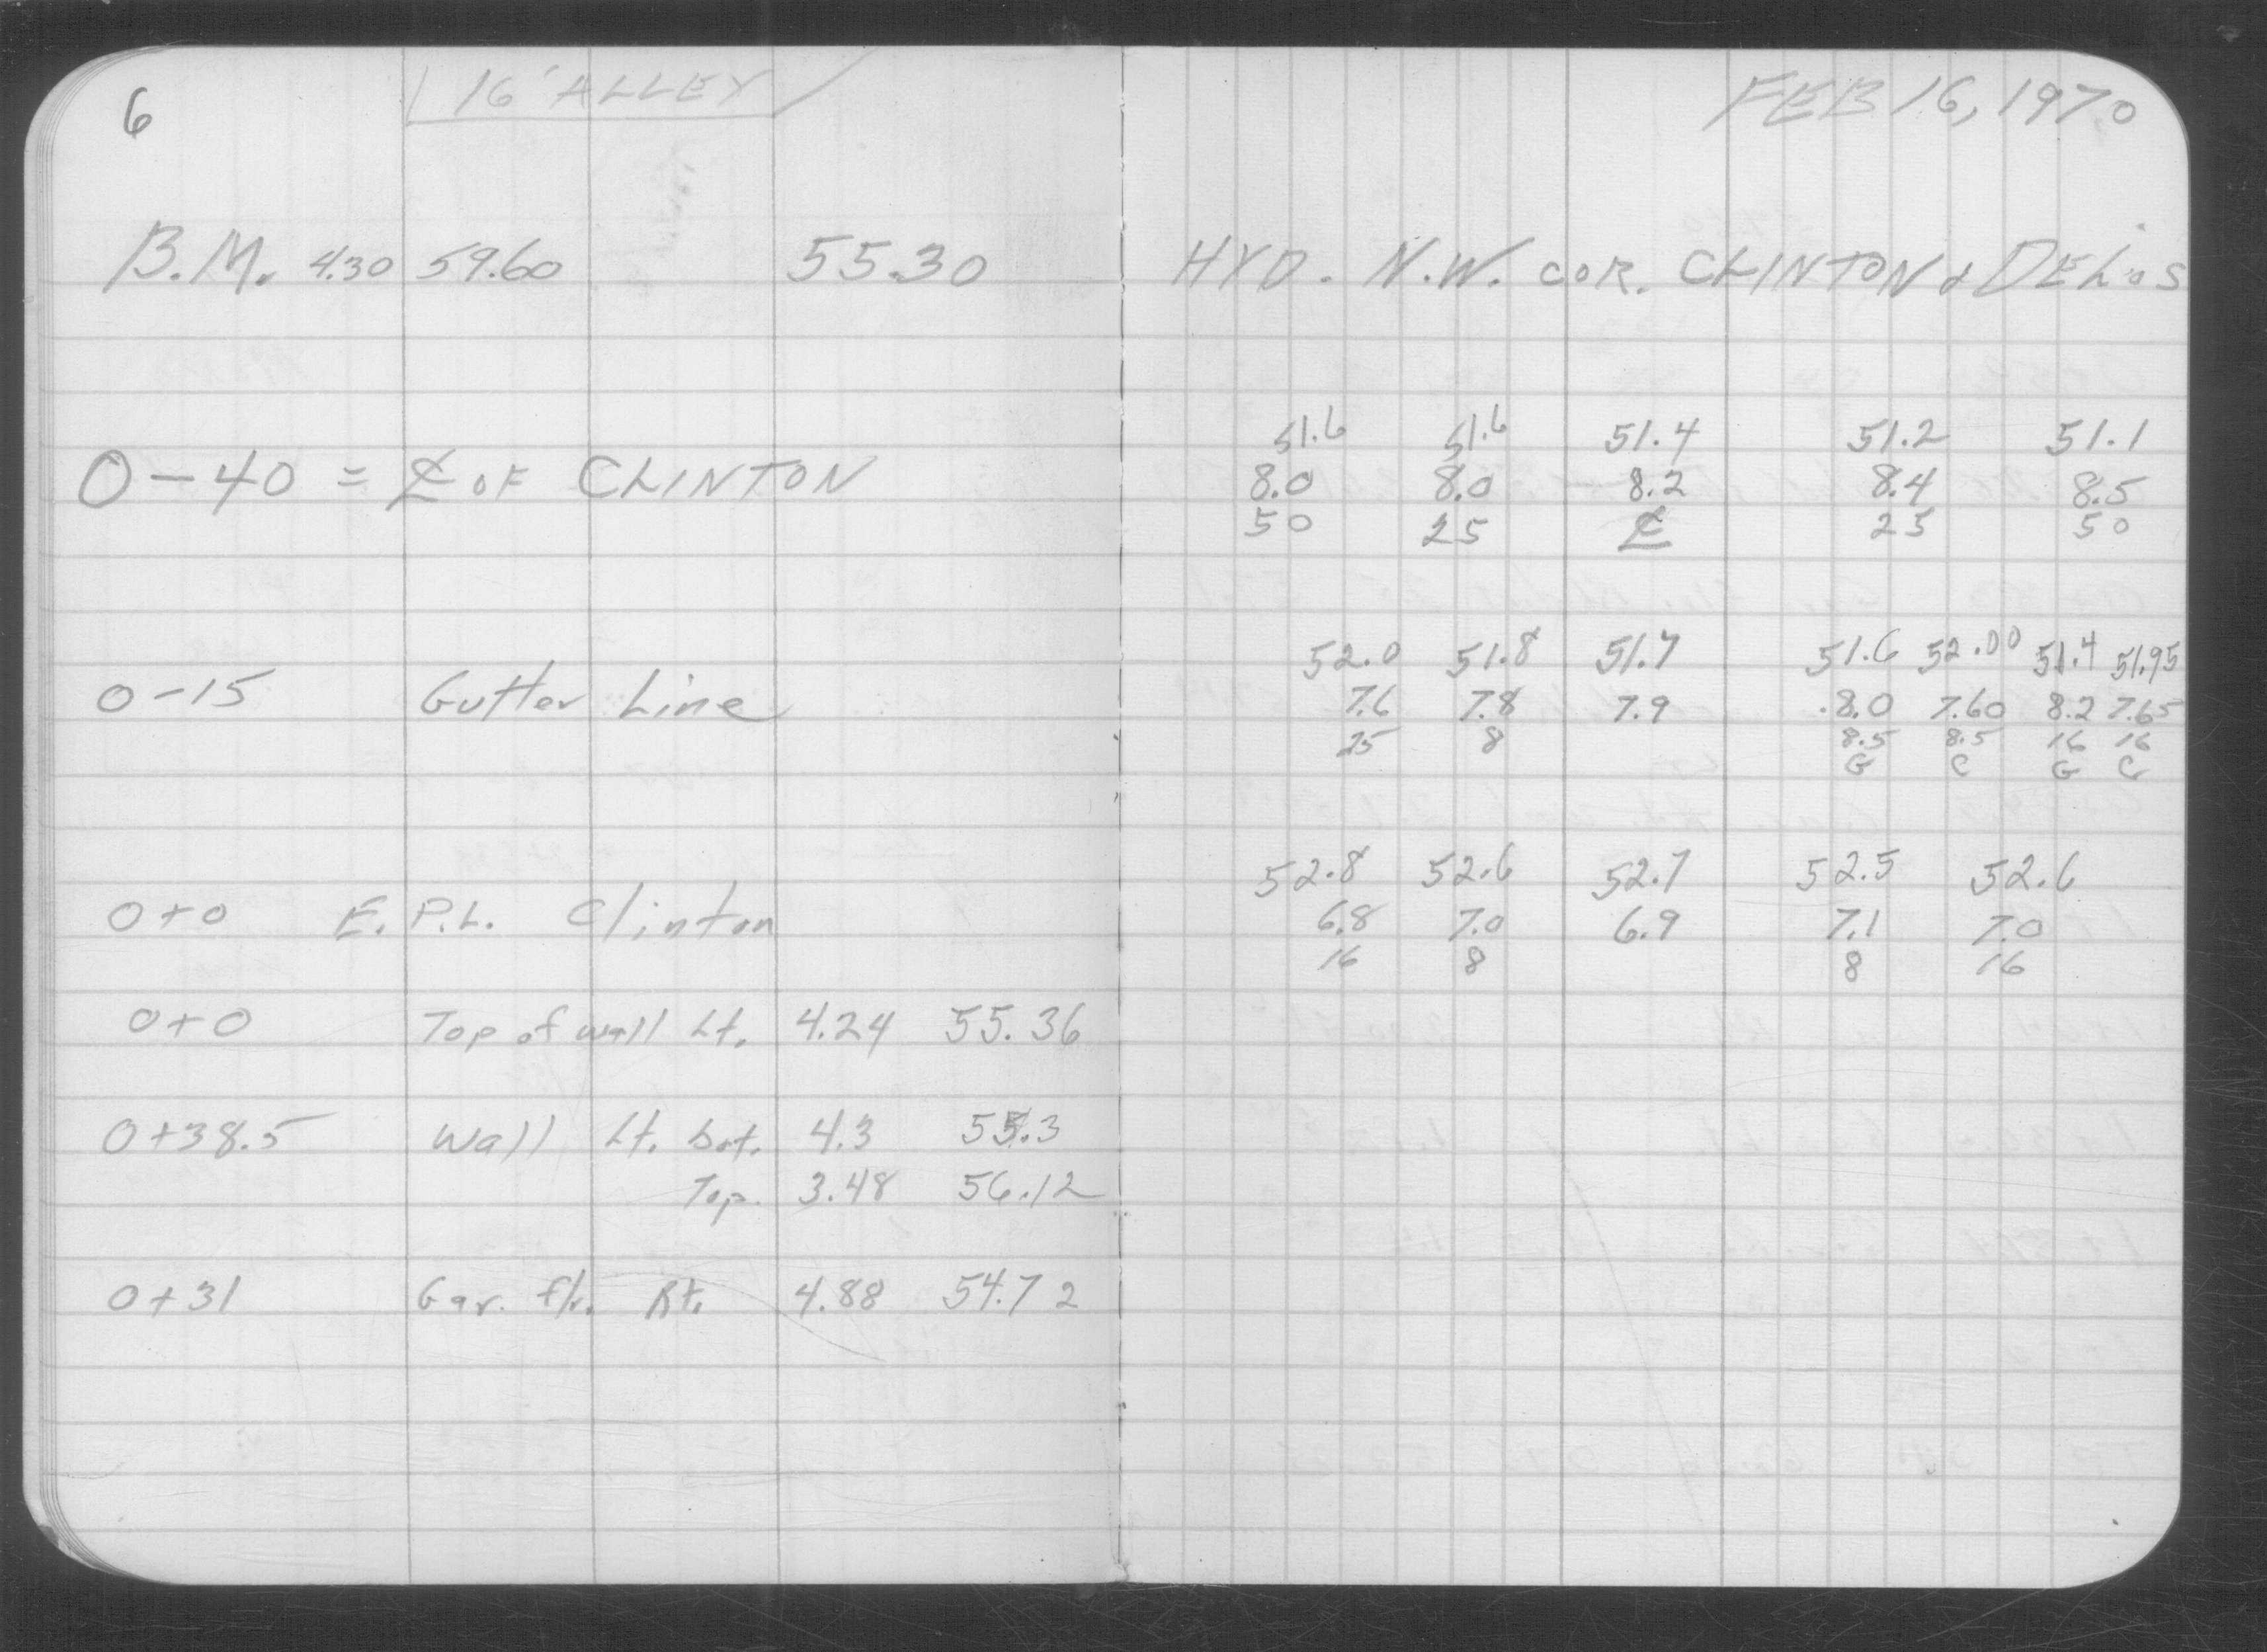 6
16' ALLEY
FEB 16, 1970
B.M. 4.30 59.60 55.30 HYD. N.W. COR. CLINTON & DELOS
51.6 51.6 51.4 51.2 51.1
0-40 = ℄ OF CLINTON 8.0 8.0 8.2 8.4 8.5
50 25 ℄ 25 50
52.0 51.8 51.7 51.6 52.00 51.4 51.95
0-15 Gutter Line 7.6 7.8 7.9 8.0 7.60 8.2 7.65
25 8 8.5 8.5 16 16
G C G C
52.8 52.6 52.7 52.5 52.6
0+0 E. P.L. Clinton 6.8 7.0 6.9 7.1 7.0
16 8 8 16
0+0 Top of wall Lt. 4.24 55.36
0+38.5 Wall Lt. bot. 4.3 55.3
Top. 3.48 56.12
0+31 Gar. flr. Rt. 4.88 54.72